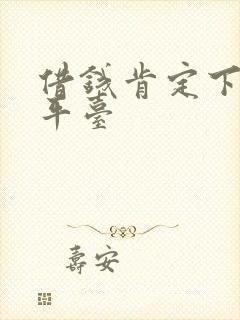 借錢肯定下
平臺
壽安